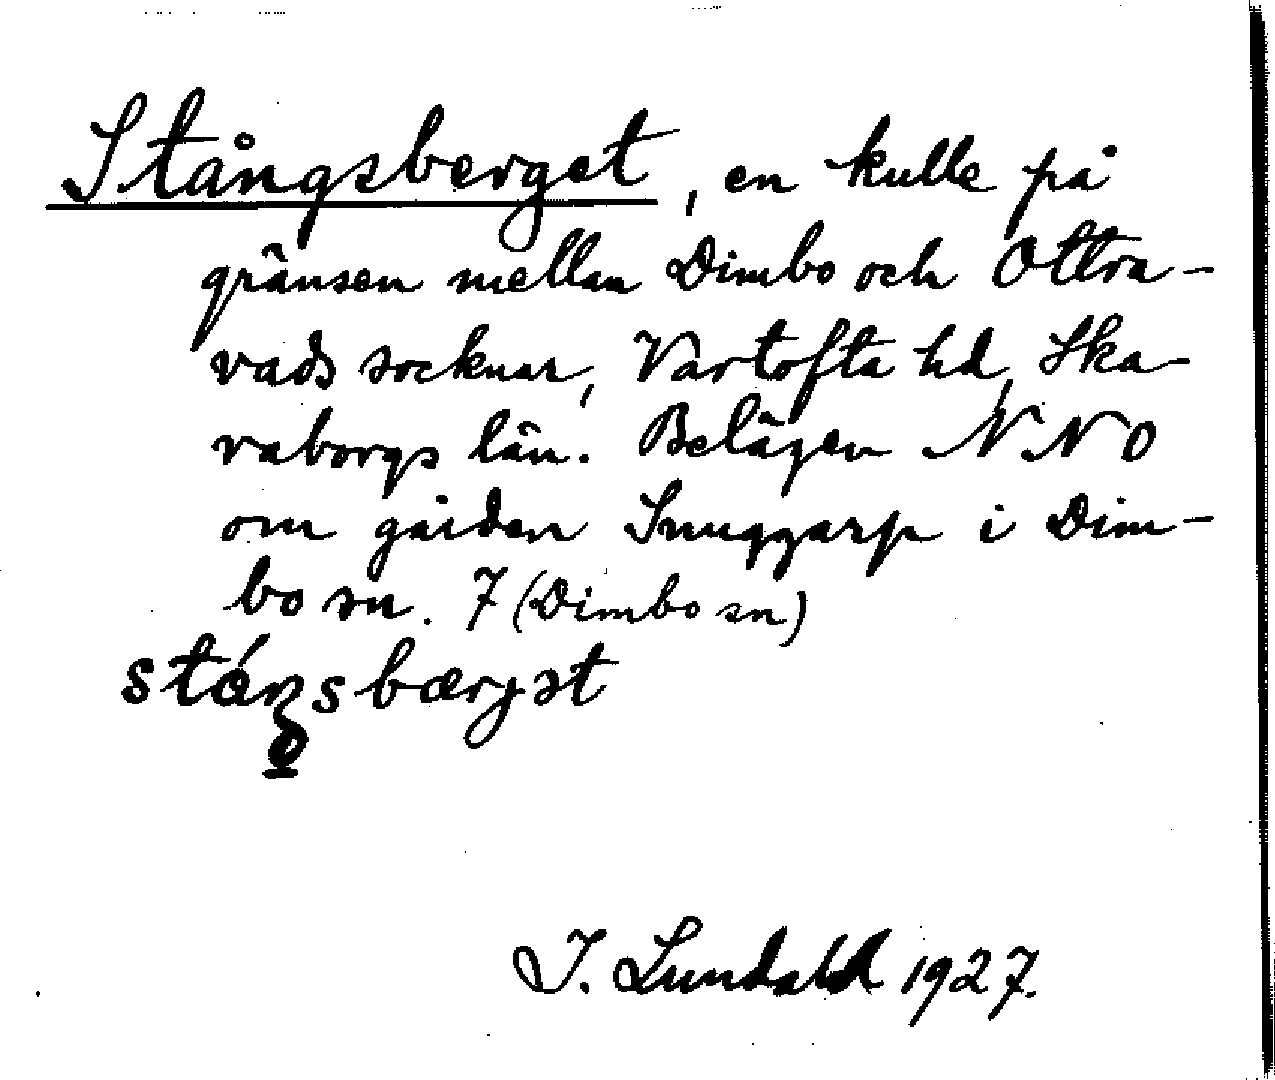 Stångsberget, en kulle på
gränsen mellan Dimbo och Ottra-
vads socknar, Vartofta hd, Ska-
raborgs län. Belägen NNO
om gården Snuggarp i Dim-
bo sn. 7 (Dimbo sn)
stáŋsbærjət
J. Lundahl 1927.